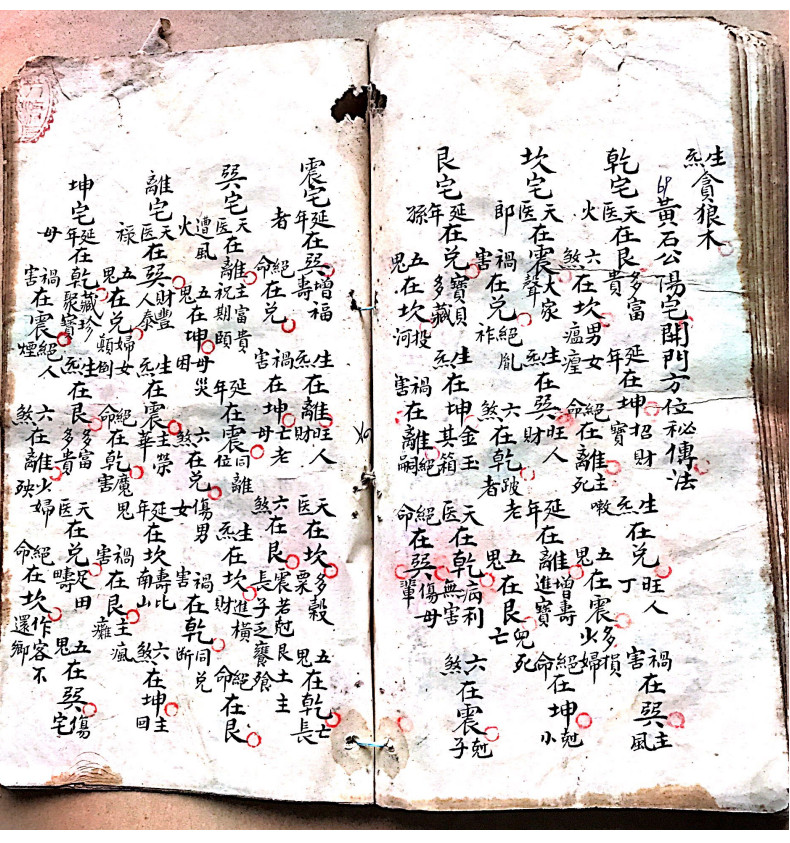 生炁貪狼木
黃石公陽宅開門方位秘傳法
乾宅 天医在艮多富貴 延年在坤招財寶 生炁在兌旺人丁 禍害在巽主風
火 六煞在坎男女瘟 絕命在離主嗽死 五鬼在震多損少婦
坎宅 天医在震大家聲 生炁在巽旺人財 延年在離增壽進寶 絕命在坤尅小
郎 禍害在兌絕胤祚 六煞在乾跛老者 五鬼在艮兒死亡
艮宅 延年在兌寶多藏 生炁在坤金玉其箱 天医在乾病利無害 六煞在震尅子
孫 五鬼在坎投河 禍害在離絕嗣 絕命在巽傷母輩
震宅 延年在巽增福壽 生炁在離旺人財 天医在坎多穀粟 五鬼在乾亡長
者 絕命在兌 禍害在坤亡老母 六煞在艮震若尅艮土主長子乏饔飧
巽宅 天医在離主富貴祝期頤 延年在震同離位 生炁在坎進橫財 絕命在艮
遭風火 五鬼在坤母災困 六煞在兌傷男女 禍害在乾同兌斷
離宅 天医在巽財豐人泰 生炁在震主榮華 延年在坎壽比南山 六煞在坤主回
祿 五鬼在兌婦女顛倒 絕命在乾魔鬼害 禍害在艮主瘋癱
坤宅 延年在乾藏珍聚寶 生炁在艮多富多貴 天医在兌足田疇 五鬼在巽傷宅
母 禍害在震絕人煙 六煞在離火婦殃 絕命在坎作客不還鄉